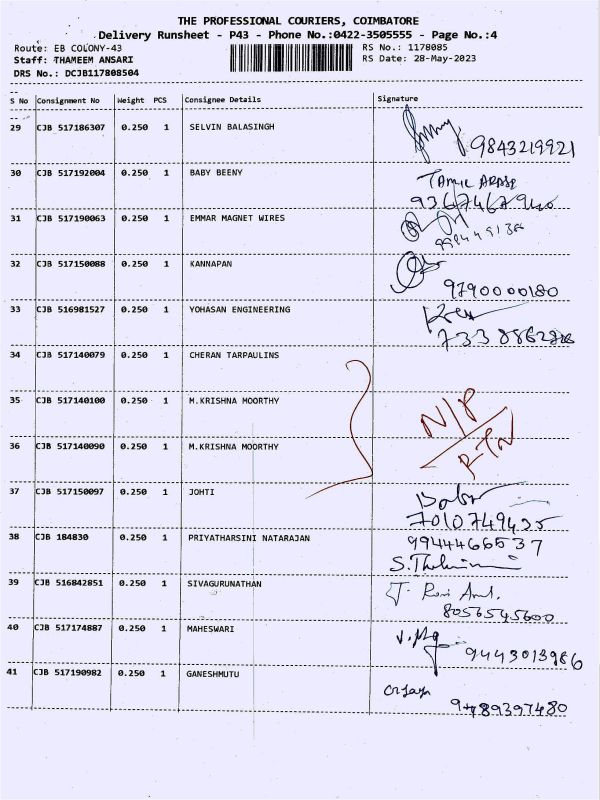 THE PROFESSIONAL COURIERS, COIMBATORE
Delivery Runsheet - P43 - Phone No.:0422-3505555 - Page No.:4
Route: EB COLONY-43 RS No.: 1178085
Staff: THAMEEM ANSARI RS Date: 28-May-2023
DRS No.: DCJB117808504
S No Consignment No Weight PCS Consignee Details Signature
29 CJB 517186307 0.250 1 SELVIN BALASINGH
9843219921
30 CJB 517192004 0.250 1 BABY BEENY TAMIL ARASI
31 CJB 517190063 0.250 1 EMMAR MAGNET WIRES
32 CJB 517150088 0.250 1 KANNAPAN
9790000180
33 CJB 516981527 0.250 1 YOHASAN ENGINEERING
34 CJB 517140079 0.250 1 CHERAN TARPAULINS
35 CJB 517140100 0.250 1 M.KRISHNA MOORTHY N/P
36 CJB 517140090 0.250 1 M.KRISHNA MOORTHY RTN
37 CJB 517150097 0.250 1 JOHTI
7010749435
38 CJB 184830 0.250 1 PRIYATHARSINI NATARAJAN 9944466537
39 CJB 516842851 0.250 1 SIVAGURUNATHAN
8056545600
40 CJB 517174887 0.250 1 MAHESWARI
9443013986
41 CJB 517190982 0.250 1 GANESHMUTU
9789397480